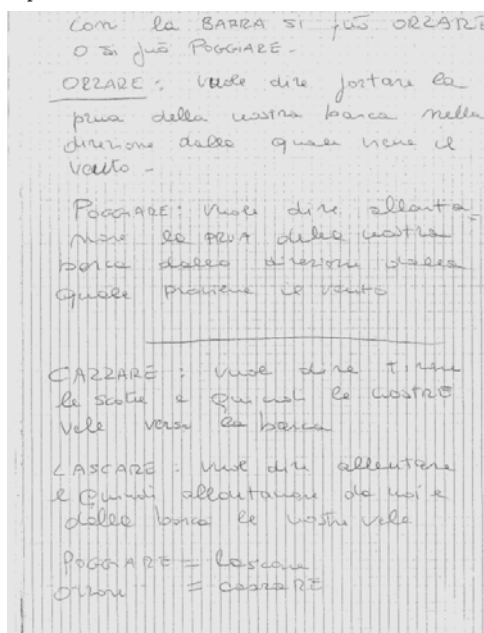 con la BARRA SI può ORZARE
O SI può POGGIARE -
ORZARE : vuole dire portare la
prua della nostra barca nella
direzione dalla quale viene il
vento -
POGGIARE : vuole dire allonta-
nare la PRUA della nostra
barca dalla direzione dalla
quale proviene il vento
CAZZARE : vuole dire tirare
le scotte e quindi le nostre
vele verso la barca
LASCARE : vuole dire allentare
e quindi allontanare da noi e
dalla barca le nostre vele
POGGIARE = lascare
orzare = cazzaRE